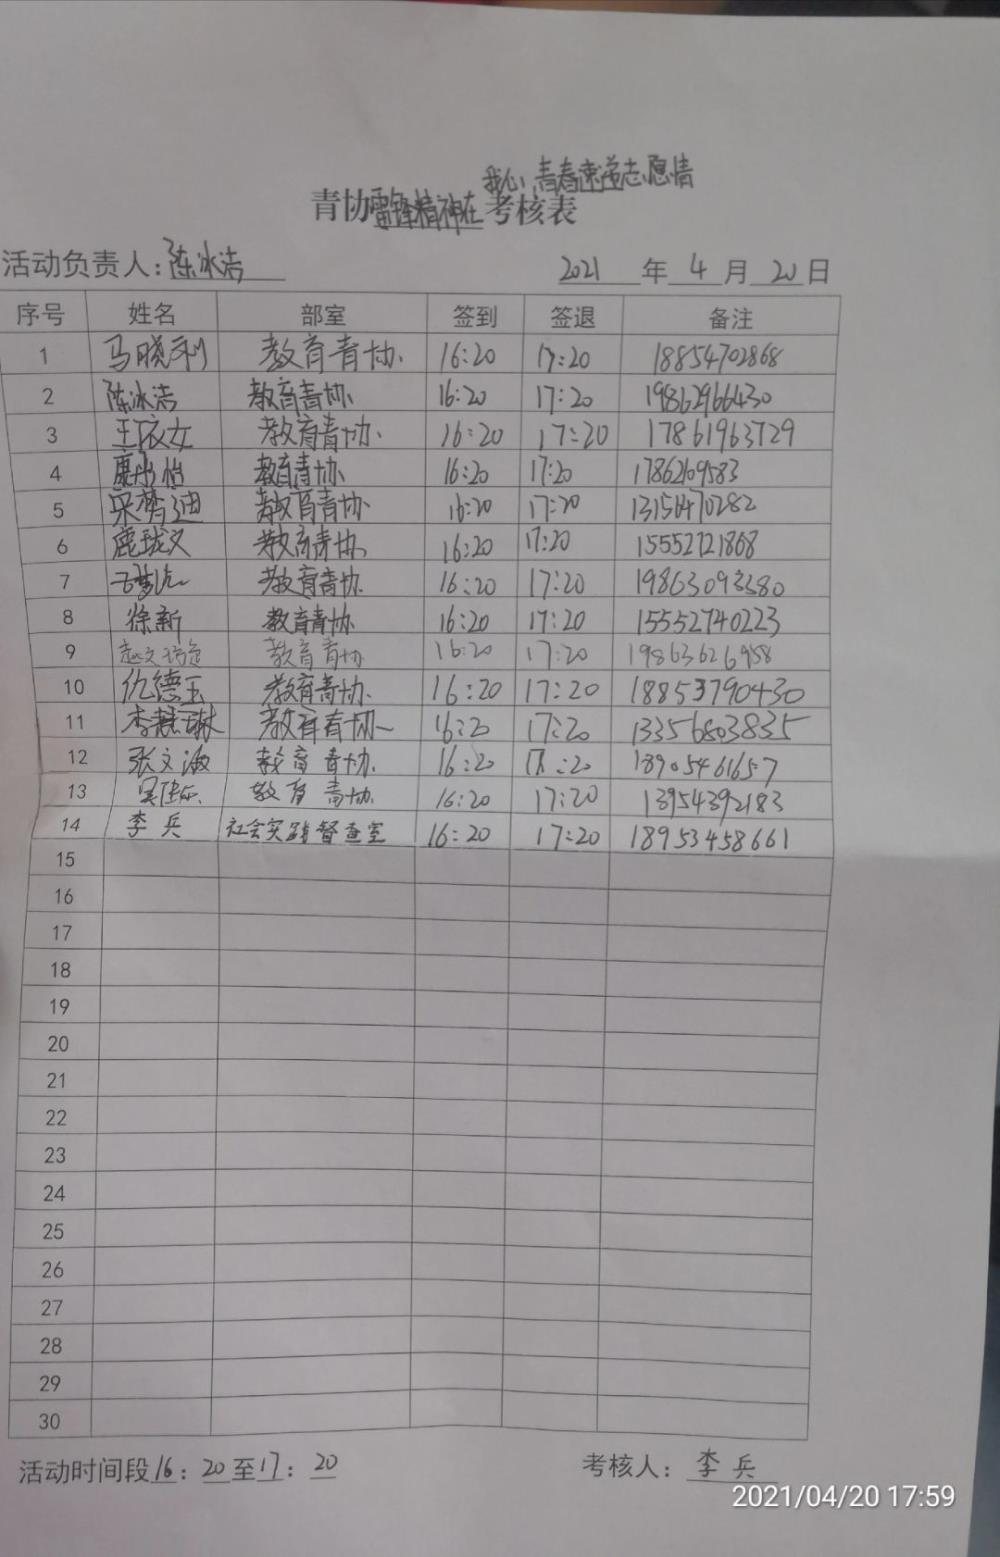 我心,青春速递志愿情
青协雷锋精神在考核表
活动负责人:陈冰洁 2021年4月20日
序号 姓名 部室 签到 签退 备注
1 马晓利 教育青协 16:20 17:20 18854702868
2 陈冰洁 教育青协 16:20 17:20 19862966430
3 王依女 教育青协 16:20 17:20 17861963729
4 教育青协 16:20 17:20 1786269583
5 宋梦迪 教育青协 16:20 17:20 13156470282
6 鹿珑义 教育青协 16:20 17:20 15552121868
7 教育青协 16:20 17:20 19863093380
8 徐新 教育青协 16:20 17:20 15552740223
9 教育青协 16:20 17:20 19863626958
10 仇德玉 教育青协 16:20 17:20 18853790430
11 李慧琳 教育青协 16:20 17:20 13356803835
12 张文淑 教育青协 16:20 :20 18905461657
13 教育青协 16:20 17:20 13954392183
14 李兵 社会实践督查室 16:20 17:20 18953458661
15
16
17
18
19
20
21
22
23
24
25
26
27
28
29
30
活动时间段16:20至17:20 考核人:李兵
2021/04/20 17:59